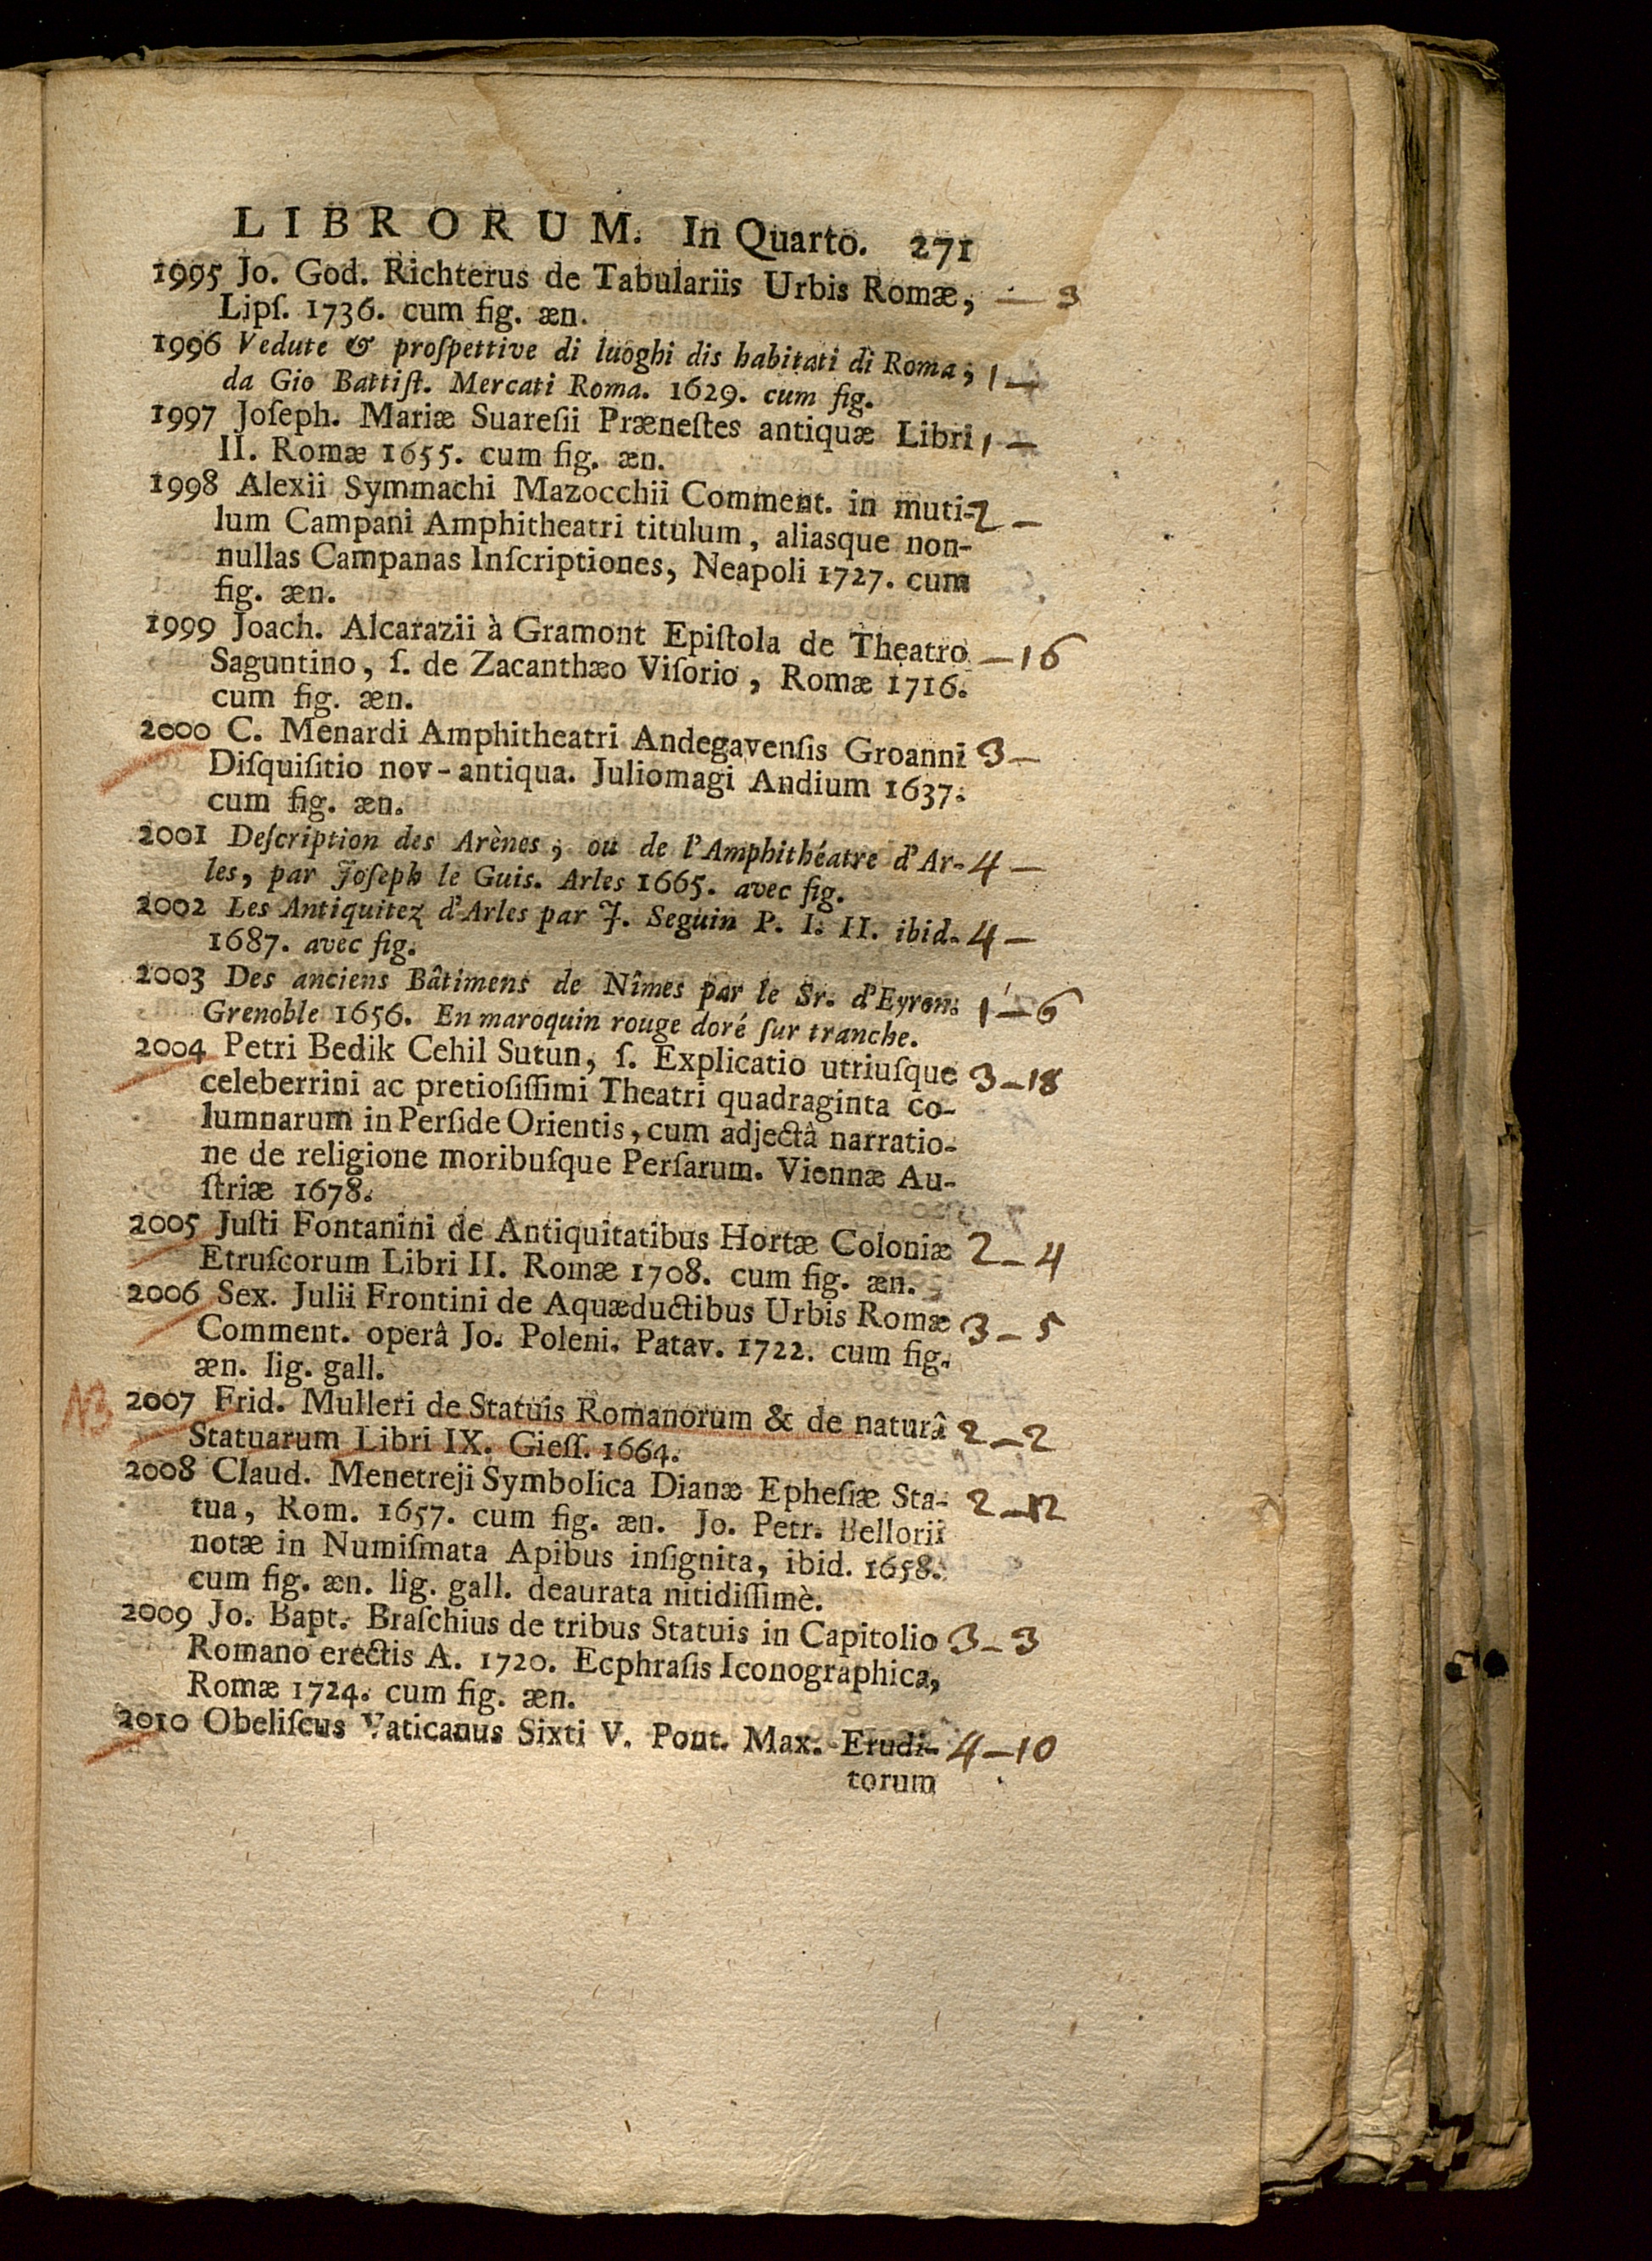 LIBRORUM. In Quarto. 271
1995 Jo. God. Richterus de Tabulariis Urbis Romæ, — 3
Lipſ. 1736. cum fig. æn.
1996 Vedute & proſpettive di luoghi dis habitati di Roma, 1 —
da Gio Battiſt. Mercati Roma. 1629. cum fig.
1997 Joſeph. Mariæ Suareſii Præneſtes antiquæ Libri 1 —
II. Romæ 1655. cum fig. æn.
1998 Alexii Symmachi Mazocchii Comment. in muti- 2 —
lum Campani Amphitheatri titulum, aliasque non-
nullas Campanas Inſcriptiones, Neapoli 1727. cum
fig. æn.
1999 Joach. Alcarazii à Gramont Epiſtola de Theatro — 16
Saguntino, ſ. de Zacanthæo Viſorio, Romæ 1716.
cum fig. æn.
2000 C. Menardi Amphitheatri Andegavenſis Groanni 3 —
Diſquiſitio nov-antiqua. Juliomagi Andium 1637.
cum fig. æn.
2001 Deſcription des Arènes, ou de l'Amphithéatre d'Ar- 4 —
les, par Joſeph le Guis. Arles 1665. avec fig.
2002 Les Antiquitez d'Arles par J. Seguin P. I. II. ibid. 4 —
1687. avec fig.
2003 Des anciens Bâtimens de Nîmes par le Sr. d'Eyron. 1 — 6
Grenoble 1656. En maroquin rouge doré ſur tranche.
2004 Petri Bedik Cehil Sutun, ſ. Explicatio utriuſque 3 — 18
celeberrini ac pretioſiſſimi Theatri quadraginta co-
lumnarum in Perſide Orientis, cum adjectâ narratio-
ne de religione moribuſque Perſarum. Viennæ Au-
ſtriæ 1678.
2005 Juſti Fontanini de Antiquitatibus Hortæ Coloniæ 2 — 4
Etruſcorum Libri II. Romæ 1708. cum fig. æn.
2006 Sex. Julii Frontini de Aquæductibus Urbis Romæ 3 — 5
Comment. operâ Jo. Poleni. Patav. 1722. cum fig.
æn. lig. gall.
NB 2007 Frid. Mulleri de Statuis Romanorum & de naturâ 2 — 2
Statuarum Libri IX. Gieſſ. 1664.
2008 Claud. Menetreji Symbolica Dianæ Epheſiæ Sta- 2 — 12
tua, Rom. 1657. cum fig. æn. Jo. Petr. Bellorii
notæ in Numiſmata Apibus inſignita, ibid. 1658.
cum fig. æn. lig. gall. deaurata nitidiſſimè.
2009 Jo. Bapt. Braſchius de tribus Statuis in Capitolio 3 — 3
Romano erectis A. 1720. Ecphraſis Iconographica,
Romæ 1724. cum fig. æn.
2010 Obeliſcus Vaticanus Sixti V. Pont. Max. Erudi- 4 — 10
torum